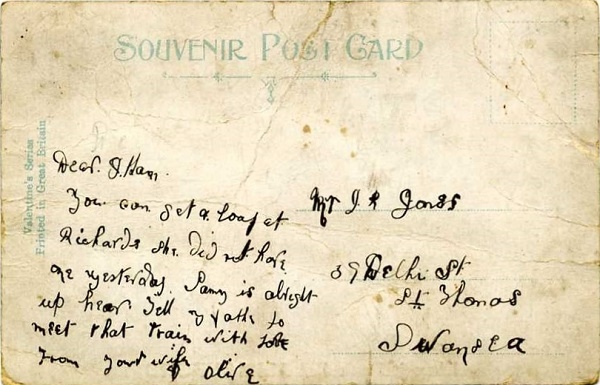 SOUVENIR POST CARD
Valentine's Series
Printed in Great Britain
Dear
You can get a loaf at
Richards she did not have
one yesterday. is alright
up hear Tell to
meet that train with love
from your wife Olive
Mr J R Jones
39 Delhi St
St Thomas
Swansea